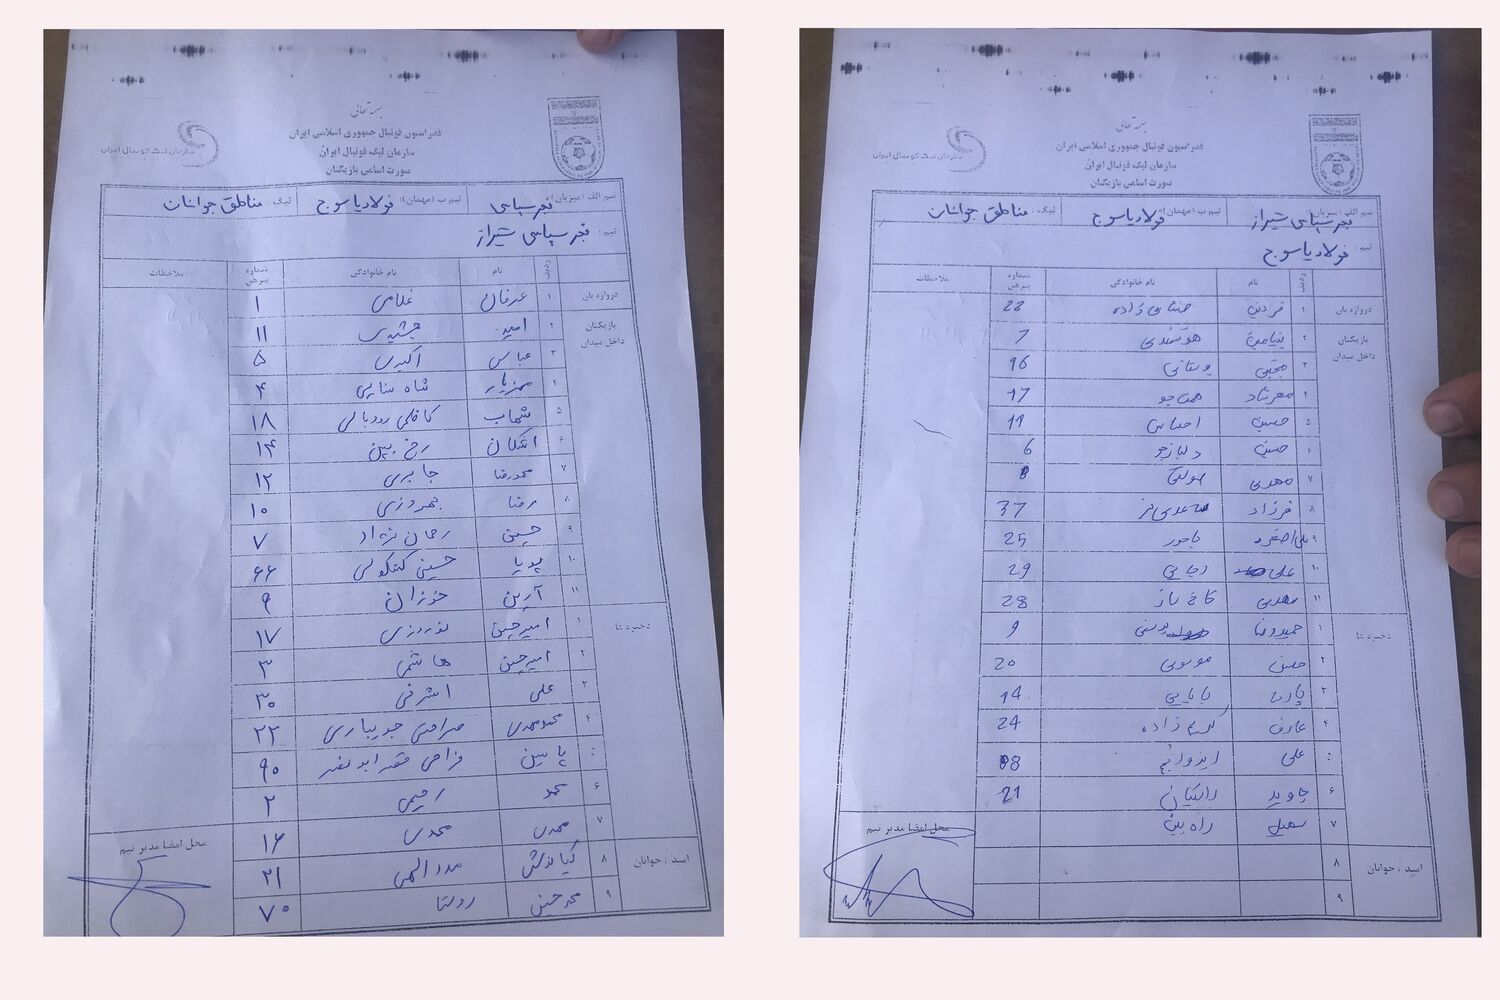 بسمه تعالی
فدراسیون فوتبال جمهوری اسلامی ایران
سازمان لیگ فوتبال ایران
صورت اسامی بازیکنان
سازمان لیگ فوتبال ایران
تیم الف (میزبان): فجر سپاسی تیم ب (مهمان): فولاد یاسوج لیگ: مناطق جوانان
تیم: فجر سپاسی شیراز
ردیف نام نام خانوادگی شماره پیرهن ملاحظات
دروازه بان ۱ عرفان غلامی ۱
بازیکنان داخل میدان ۲ امید جمشیدی ۱۱
۳ عباس اکبری ۵
۴ مهزیار شاه سنایی ۴
۵ شهاب کاظمی رودبالی ۱۸
۶ اشکان رخ بین ۱۴
۷ محمدرضا جابری ۱۲
۸ رضا بهروزی ۱۰
۹ حسین رحمان نژاد ۷
۱۰ پویا حسینی کشکولی ۶۶
۱۱ آرین خوزان ۹
ذخیره ها ۱ امیرحسین نوروزی ۱۷
۲ امیرحسین هاشمی ۳
۳ علی اشرفی ۳۰
۴ محمدمهدی صرامی جویباری ۲۲
۵ یاسین ۹۰
۶ محمد رحیمی ۲
۷ مهدی محمدی ۱۶
امید / جوانان ۸ کیانوش مددالهی ۲۱
۹ محمدحسین روستا ۷۰
محل امضا مدیر تیم
بسمه تعالی
فدراسیون فوتبال جمهوری اسلامی ایران
سازمان لیگ فوتبال ایران
صورت اسامی بازیکنان
سازمان لیگ فوتبال ایران
تیم الف (میزبان): فجر سپاسی شیراز تیم ب (مهمان): فولاد یاسوج لیگ: مناطق جوانان
تیم: فولاد یاسوج
ردیف نام نام خانوادگی شماره پیرهن ملاحظات
دروازه بان ۱ فردین 22
بازیکنان داخل میدان ۲ بنیامین هوشمندی 7
۳ مجتبی بوستانی 16
۴ مهرشاد همت جو 17
۵ حسین احساس 11
۶ حسین دلبازجو 6
۷ مهدی 8
۸ فرزاد 37
۹ علی اصغر 25
۱۰ علی رجایی 29
۱۱ مهدی 28
ذخیره ها ۱ حمیدرضا یونسی 9
۲ حسین موسوی 20
۳ پارسا بابایی 14
۴ عارف کریم زاده 24
۵ علی 88
۶ جاوید 21
۷ سهیل راه بین
امید / جوانان ۸
۹
محل امضا مدیر تیم